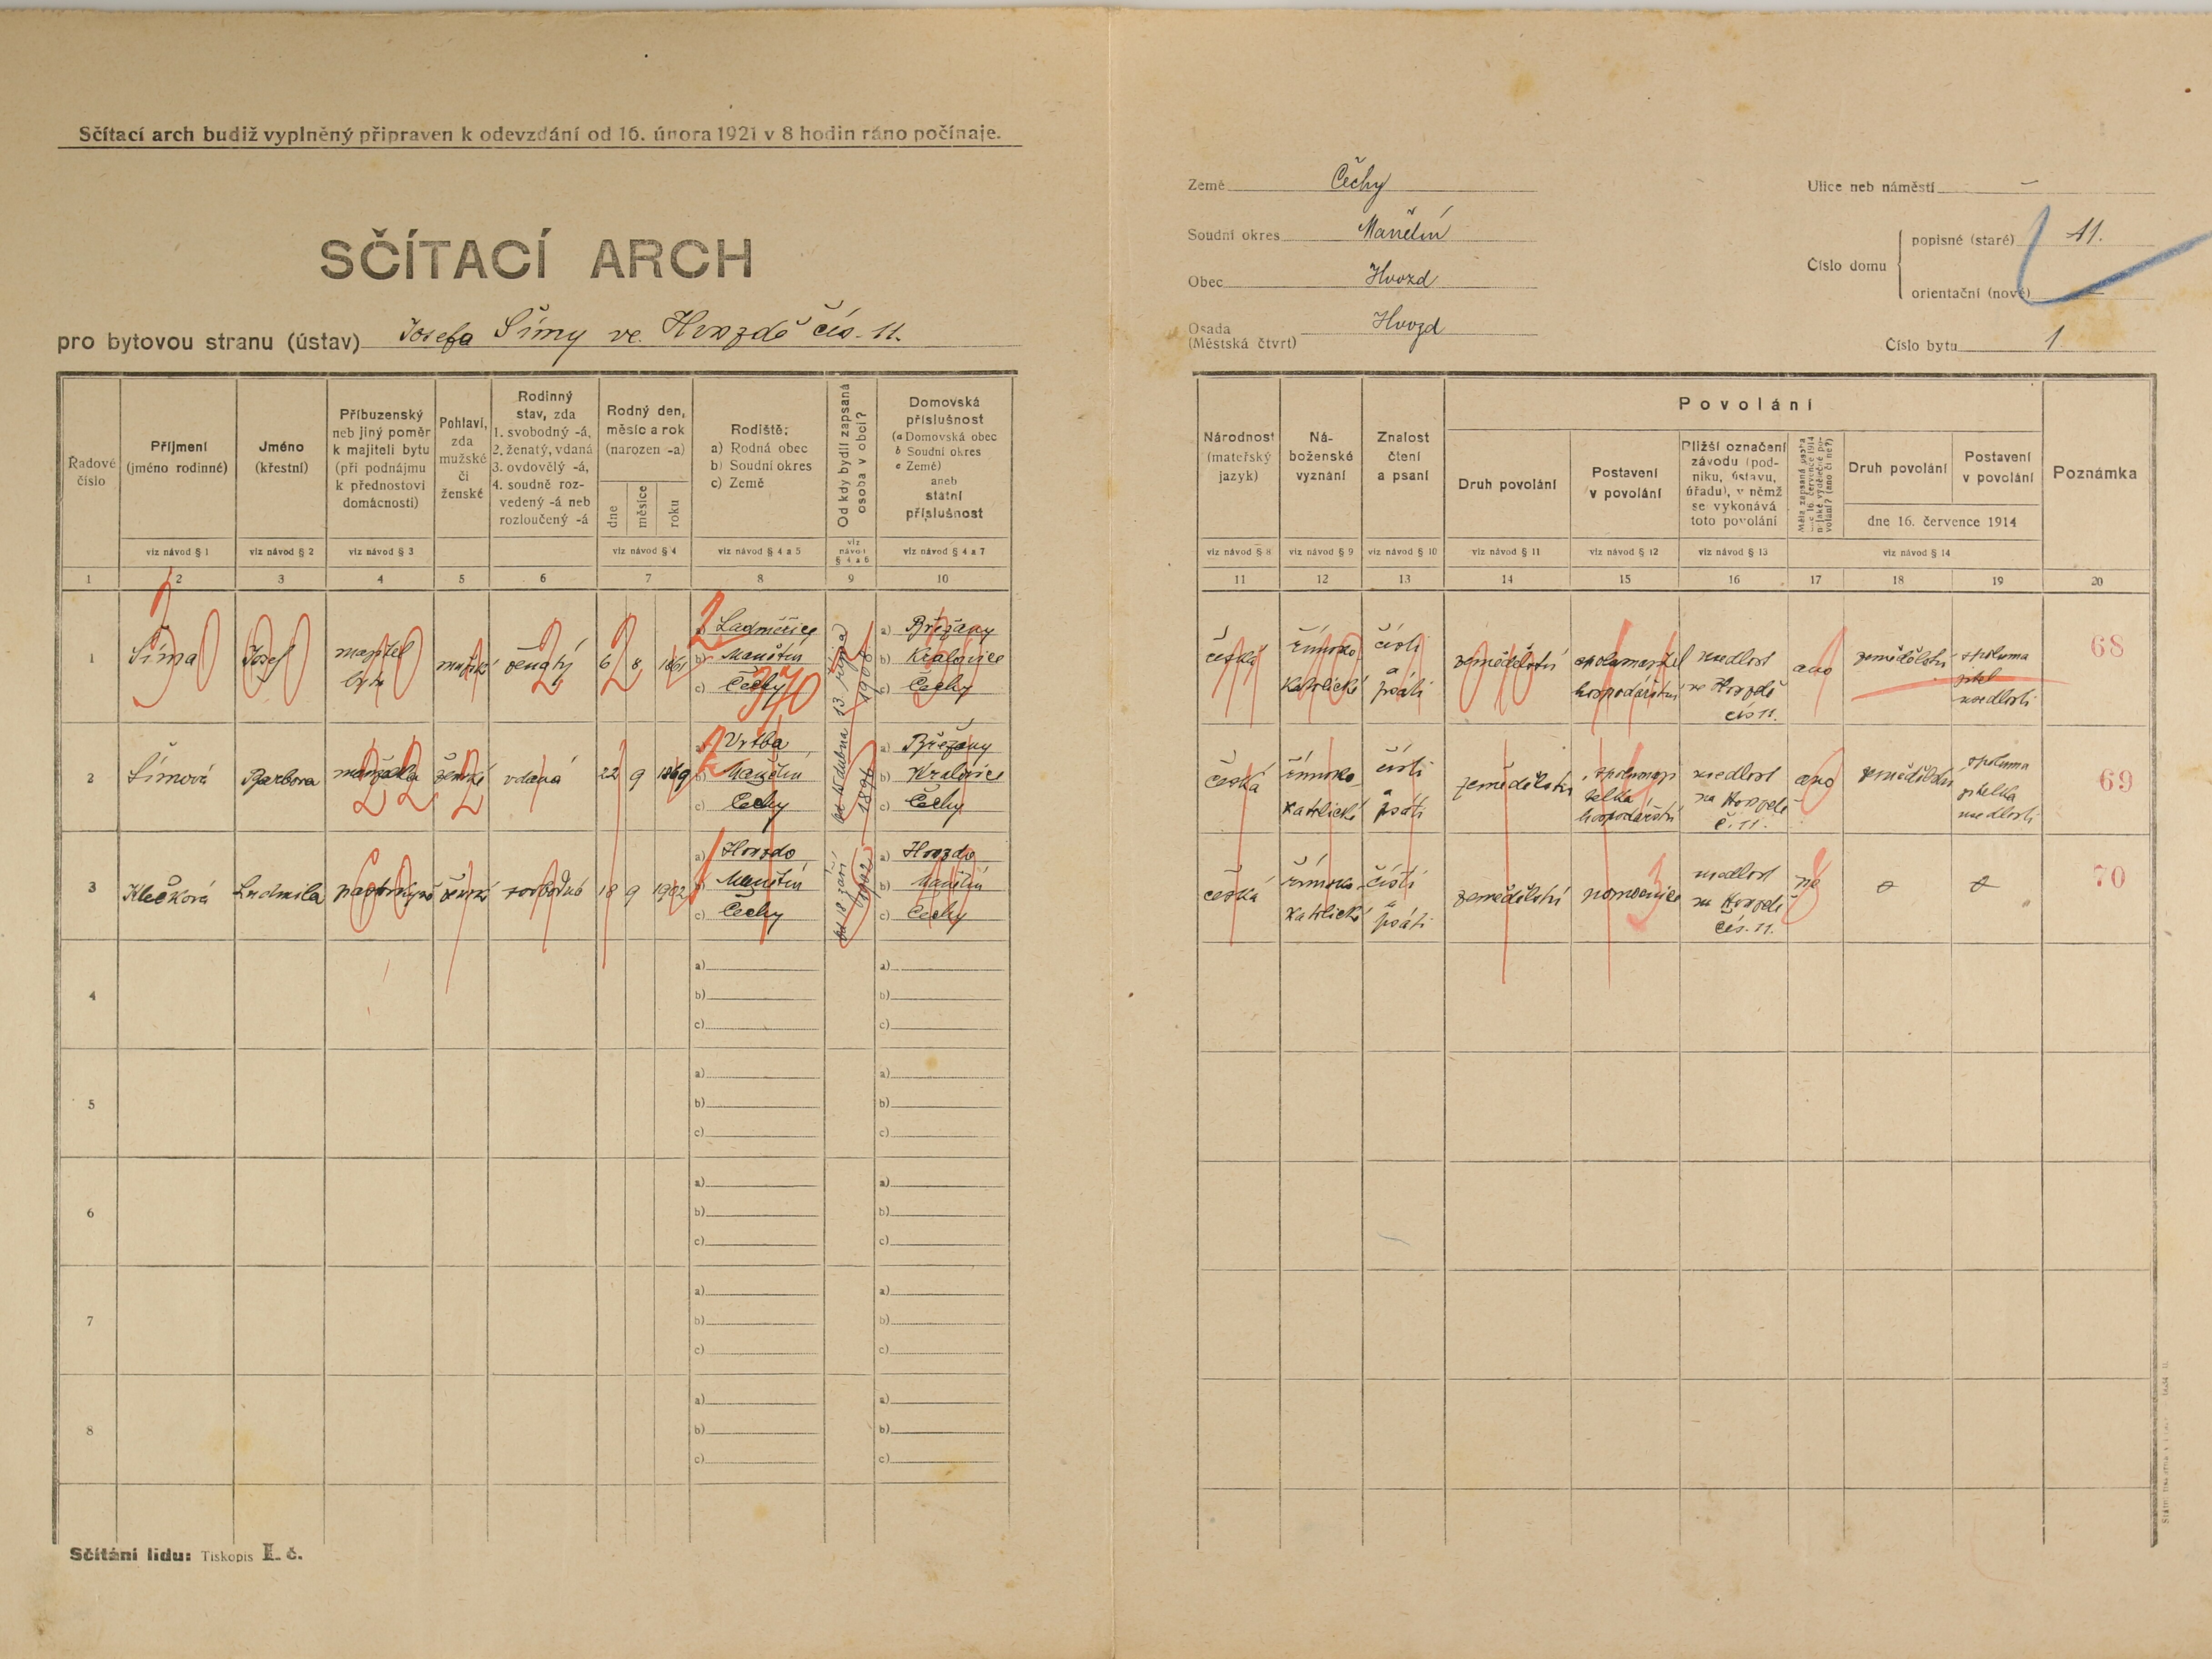 Sčítací arch budiž vyplněný připraven k odevzdání od 16. února 1921 v 8 hodin ráno počínaje.
SČÍTACÍ ARCH
pro bytovou stranu (ústav) Josefa Šímy ve Hvozdě čís. 11.
Země Čechy
Soudní okres Manětín
Obec Hvozd
Osada Hvozd
(Městská čtvrt)
Ulice neb náměstí —
Číslo domu
popisné (staré) 11.
orientační (nové) —
Číslo bytu 1
Řadové číslo
Příjmení
(jméno rodinné)
viz návod § 1
Jméno
(křestní)
viz návod § 2
Příbuzenský
neb jiný poměr
k majiteli bytu
(při podnájmu
k přednostovi
domácnosti)
viz návod § 3
Pohlaví,
zda
mužské
či
ženské
Rodinný
stav, zda
1. svobodný -á,
2. ženatý, vdaná
3. ovdovělý -á,
4. soudně roz-
vedený -á neb
rozloučený -á
Rodný den,
měsíc a rok
(narozen -a)
dne
měsíce
roku
viz návod § 4
Rodiště:
a) Rodná obec
b) Soudní okres
c) Země
viz návod § 4 a 5
Od kdy bydlí zapsaná
osoba v obci?
viz
návod
§ 4 a 6
Domovská
příslušnost
(a Domovská obec
b Soudní okres
c Země)
aneb
státní
příslušnost
viz návod § 4 a 7
Národnost
(mateřský
jazyk)
viz návod § 8
Ná-
boženské
vyznání
viz návod § 9
Znalost
čtení
a psaní
viz návod § 10
Povolání
Druh povolání
viz návod § 11
Postavení
v povolání
viz návod § 12
Bližší označení
závodu (pod-
niku, ústavu,
úřadu), v němž
se vykonává
toto povolání
viz návod § 13
Měla zapsaná osoba
16. července 1914
nějaké výdělečné po-
volání? (ano či ne?)
Druh povolání
Postavení
v povolání
dne 16. července 1914
viz návod § 14
Poznámka
1 2 3 4 5 6 7 8 9 10 11 12 13 14 15 16 17 18 19 20
1 Šíma Josef majitel bytu mužské ženatý 6 8 1861
a) Ladměřice
b) Manětín
c) Čechy
13. října 1908
a) Břežany
b) Kralovice
c) Čechy
česká římsko katolické čísti a psáti zemědělství spolumajitel hospodářství usedlost ve Hvozdě čís 11. ano zemědělství spoluma jitel usedlosti 68
2 Šímová Barbora manželka ženské vdaná 22 9 1869
a) Vrtba
b) Manětín
c) Čechy
od dubna 1896
a) Břežany
b) Kralovice
c) Čechy
česká římsko katolické čísti a psáti zemědělství spolumaji telka hospodářství usedlost na Hvozdě č. 11. ano zemědělství spoluma jitelka usedlosti 69
3 Klečková Ludmila ženské svobodná 18 9 1902
a) Hvozd
b) Manětín
c) Čechy
od 18 září 1902
a) Hvozd
b) Manětín
c) Čechy
česká římsko katolické čísti a psáti zemědělství pomocnice usedlost na Hvozdě čís. 11. ne 70
4
a)
b)
c)
a)
b)
c)
5
a)
b)
c)
a)
b)
c)
6
a)
b)
c)
a)
b)
c)
7
a)
b)
c)
a)
b)
c)
8
a)
b)
c)
a)
b)
c)
Sčítání lidu: Tiskopis I. č.